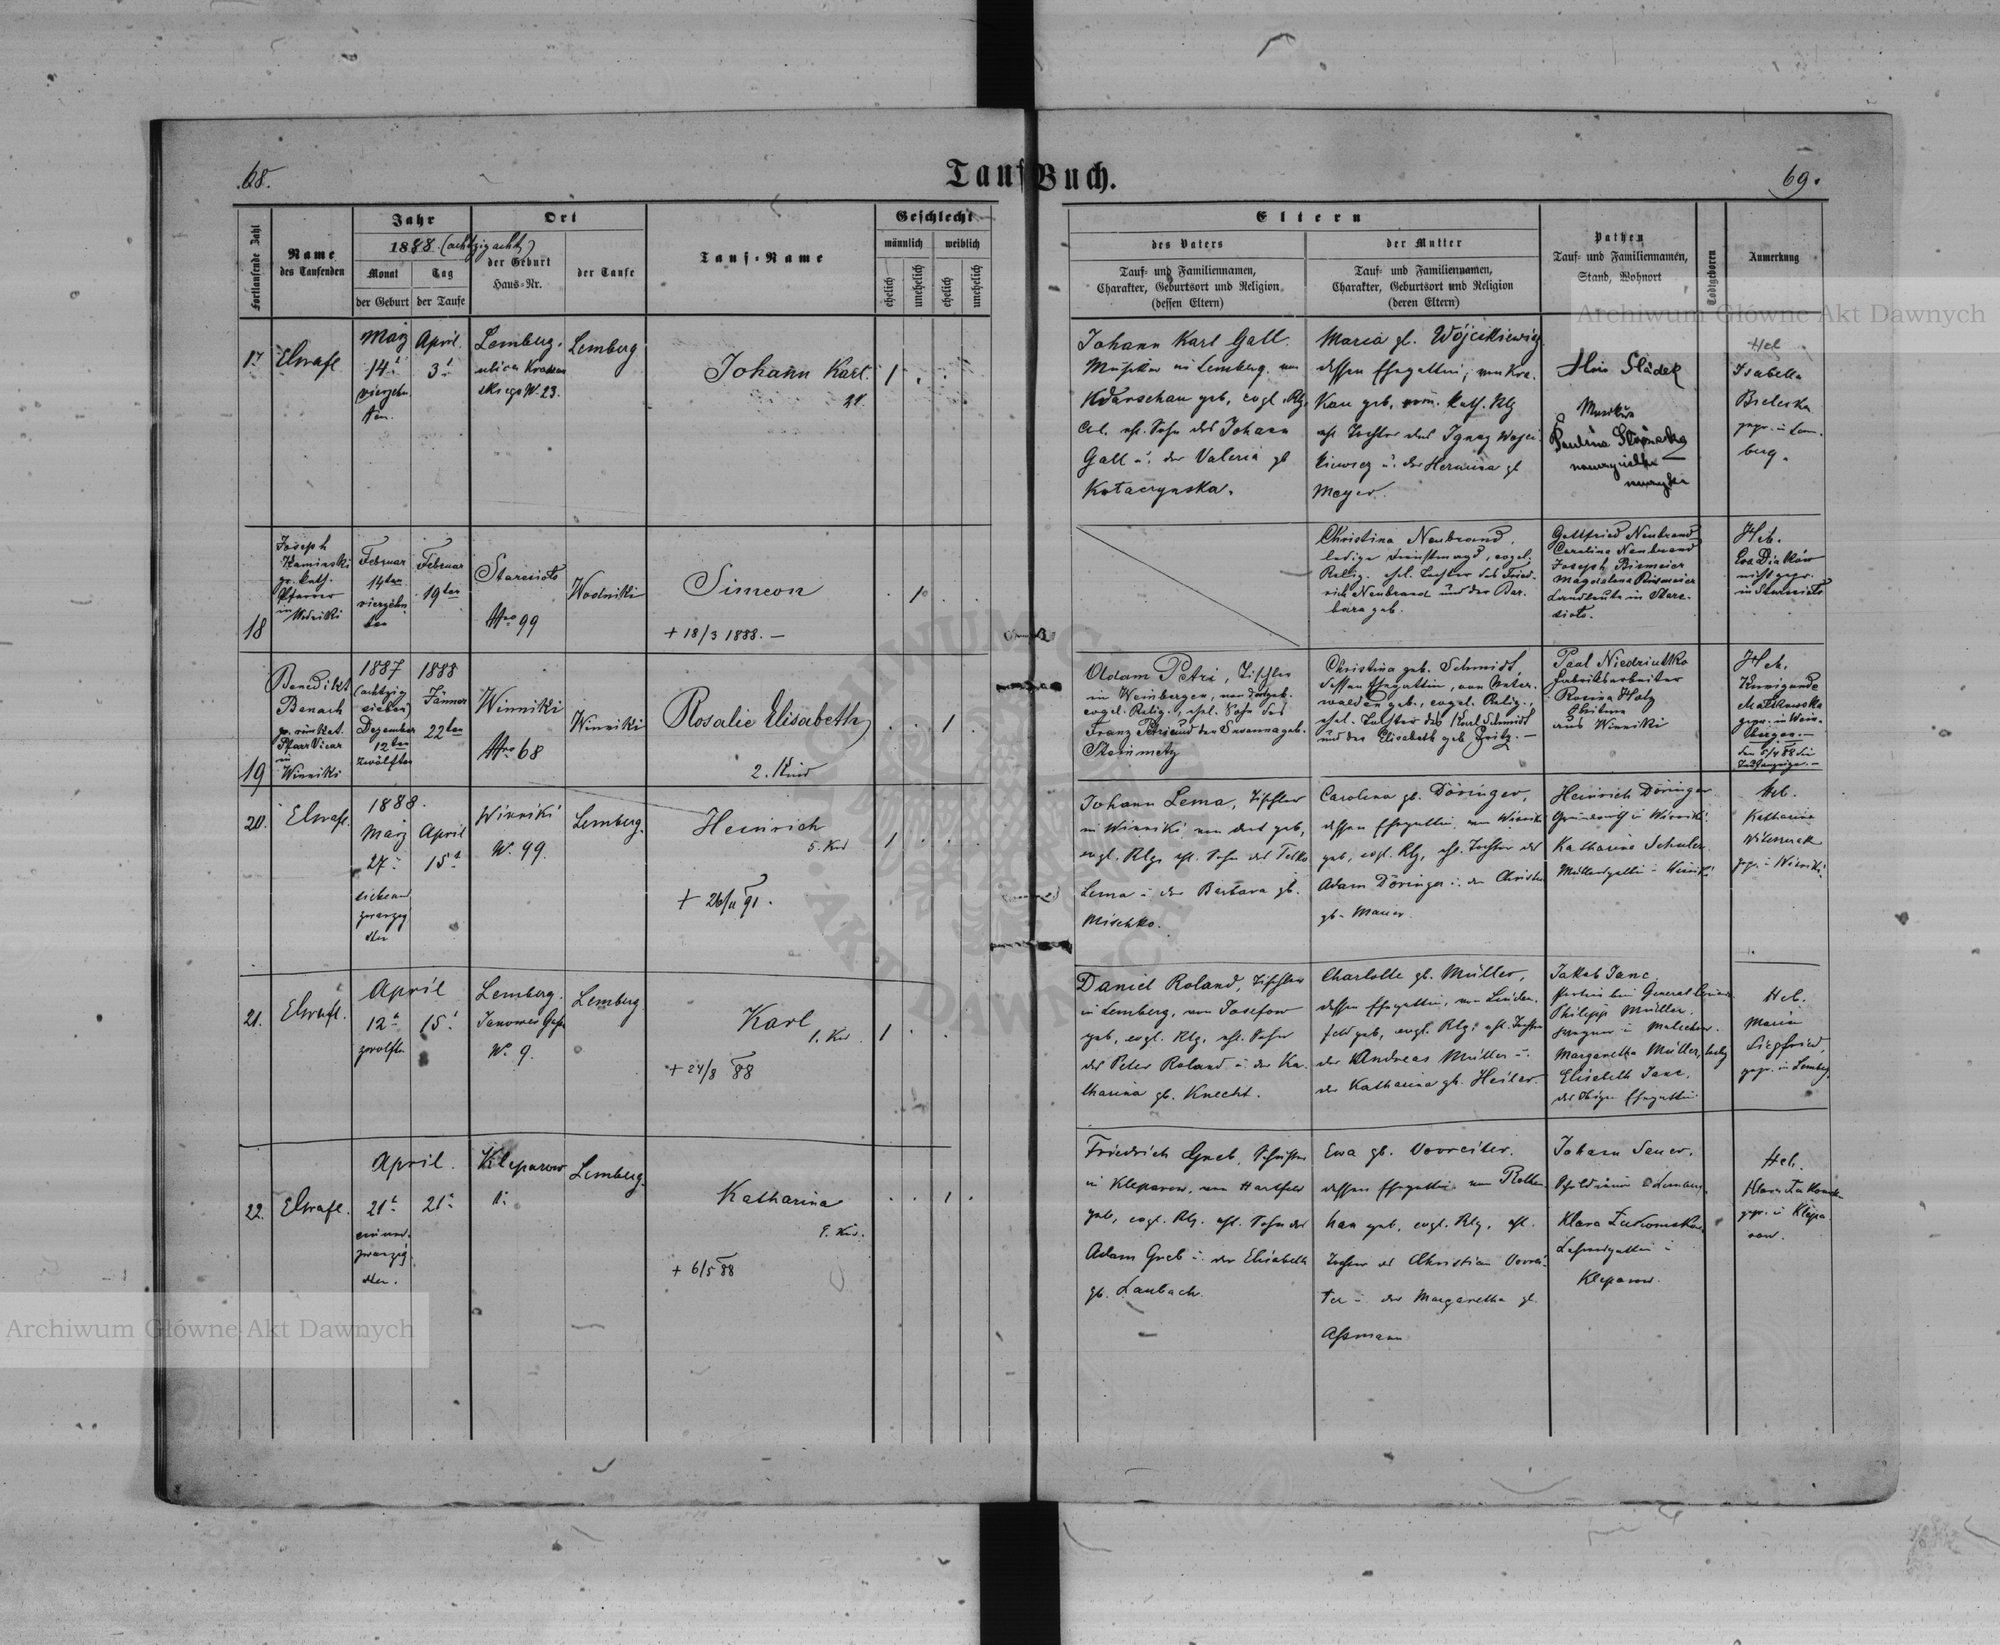 68.
Tauf Buch.
69.
Fortlaufende Zahl
Name
des Taufenden
Jahr
1888. (achtzigacht)
Monat
Tag
der Geburt
der Taufe
Ort
der Geburt
Haus-Nr.
der Taufe
Tauf-Name
Geschlecht
männlich
weiblich
ehelich
unehelich
ehelich
unehelich
Eltern
des Vaters
Tauf- und Familiennamen,
Charakter, Geburtsort und Religion
(dessen Eltern)
der Mutter
Tauf- und Familiennamen,
Charakter, Geburtsort und Religion
(deren Eltern)
Pathen
Tauf- und Familiennamen,
Stand, Wohnort
Todtgeboren
Anmerkung
Archiwum Główne Akt Dawnych
17
März
14
April
3
Lemberg,
Nr. 23.
Lemberg
Johann Karl
1
Johann Karl Gall.
Musiker in Lemberg, von
Warschau geb., evgl. Rlg.
ehl. Sohn des Johann
Gall u. der Valeria gb
Maria gb.
dessen Ehegattin, von Kra-
kau geb., röm. kath. Rlg
ehl. Tochter des Ignaz Wojci
kiewicz u. der Hermina gb
Meyer.
Sládek
Musiker
Paulina
Heb.
Isabella
Bielska
gepr. in Lem-
berg.
18
Joseph
Kaminski
gr. kath.
Pfarrer
in
Wodniki
Februar
14ten
vierzehn-
ten
Februar
19ten
Staresioło
Nro 99
Wodniki
Simeon
+ 18/3 1888. —
1
Christina Neubrand,
ledige Dienstmagd, evgel.
Relig. ehel. Tochter des Fried-
rich Neubrand und der Bar-
bara geb.
Gottfried Neubrand
Carolina Neubrand
Joseph Bismeier
Magdalena Bismeier
Landleute in Stare-
sioło.
Heb.
Eva
nicht gepr.
in Staresioło
19
Benedikt
Banach
Pfarr Vicar
in
Winniki
1887
(achtzig
sieben)
Dezember
12ten
zwölften
1888
Jänner
22ten
Winniki
Nro 68
Winniki
Rosalie Elisabeth
2. Kind
1
Adam Petri, Tischler
in Weinbergen, von dortgeb.
evgel. Relig., ehel. Sohn des
Franz Petri und der Susanna geb.
Steinmetz
Christina geb. Schmidt,
dessen Ehegattin, von Unter-
walden geb., evgel. Relig.,
ehel. Tochter des Karl Schmidt
und der Elisabeth geb. Fritz. —
Paul
Fabriksarbeiter
Rosina
aus Winniki
Heb.
Kunigunde
gepr. in Wein-
bergen. —
20.
1888.
März
27
sieben und
zwanzig
sten
April
15
Winniki
Nr. 99.
Lemberg.
Heinrich
5. Kind
+ 26/11 91.
1
Johann Lema, Tischler
in Winniki von dort geb.,
evgl. Rlg. ehl. Sohn des
Lema u. der Barbara gb.
Mischko.
Carolina gb. Döringer,
dessen Ehegattin, von Winniki
geb., evgl. Rlg., ehl. Tochter des
Adam Döringer u. der Christin
gb. Mauer
Heinrich Döringer
Grundwirth in Winniki
Katharina Schuler
Heb.
Katharina
gepr. in Winniki
21.
April
12
zwölften
15
Lemberg.
Janower Gasse
Nr. 9.
Lemberg
Karl
1. Kind
+ 24/8 88
1
Daniel Roland, Tischler
in Lemberg, von Josefow
geb., evgl. Rlg., ehl. Sohn
des Peter Roland u. der Ka-
tharina gb. Knecht.
Charlotte gb. Müller,
dessen Ehegattin, von Linden-
feld geb., evgl. Rlg., ehl. Tochter
des Andreas Müller u.
der Katharina gb. Heiler.
Jakob Janz
Philipp Müller.
Margaretha Müller, ledig
Elisabeth Janz.
Heb.
Maria
Siegfried,
gepr. in Lemberg.
22.
April.
21
ein und
zwanzig
sten.
21
Kleparow
Lemberg.
Katharina
+ 6/5 88
1
Friedrich Greb,
in Kleparow, von Hartfeld
geb., evgl. Rlg. ehl. Sohn des
Adam Greb u. der Elisabeth
gb. Laubach.
Ewa gb. Vorreiter.
dessen Ehegattin von Rothen-
han geb., evgl. Rlg., ehl.
Tochter des Christian Vorrei-
ter u. der Margaretha gb.
Assmann
Johann Sauer.
Klara
Kleparow.
Heb.
Klara
gepr. in Klepa-
row.
Archiwum Główne Akt Dawnych